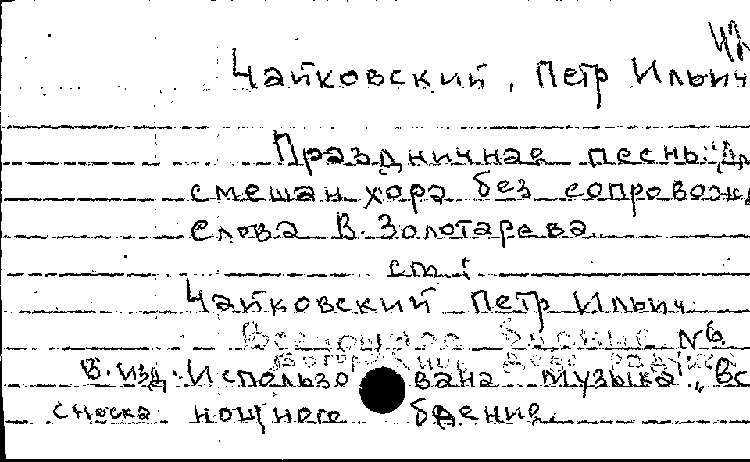 42
Чайковский, Петр Ильич
Праздничная песнь: Дл
смешан. хора без сопровожд
слова В. Золотарева.
см:
Чайковский Петр Ильич
Всенощное бдение №6
Богородице Дево радуйся
В. изд. Использована музыка „Вс
сноска нощного бдения.